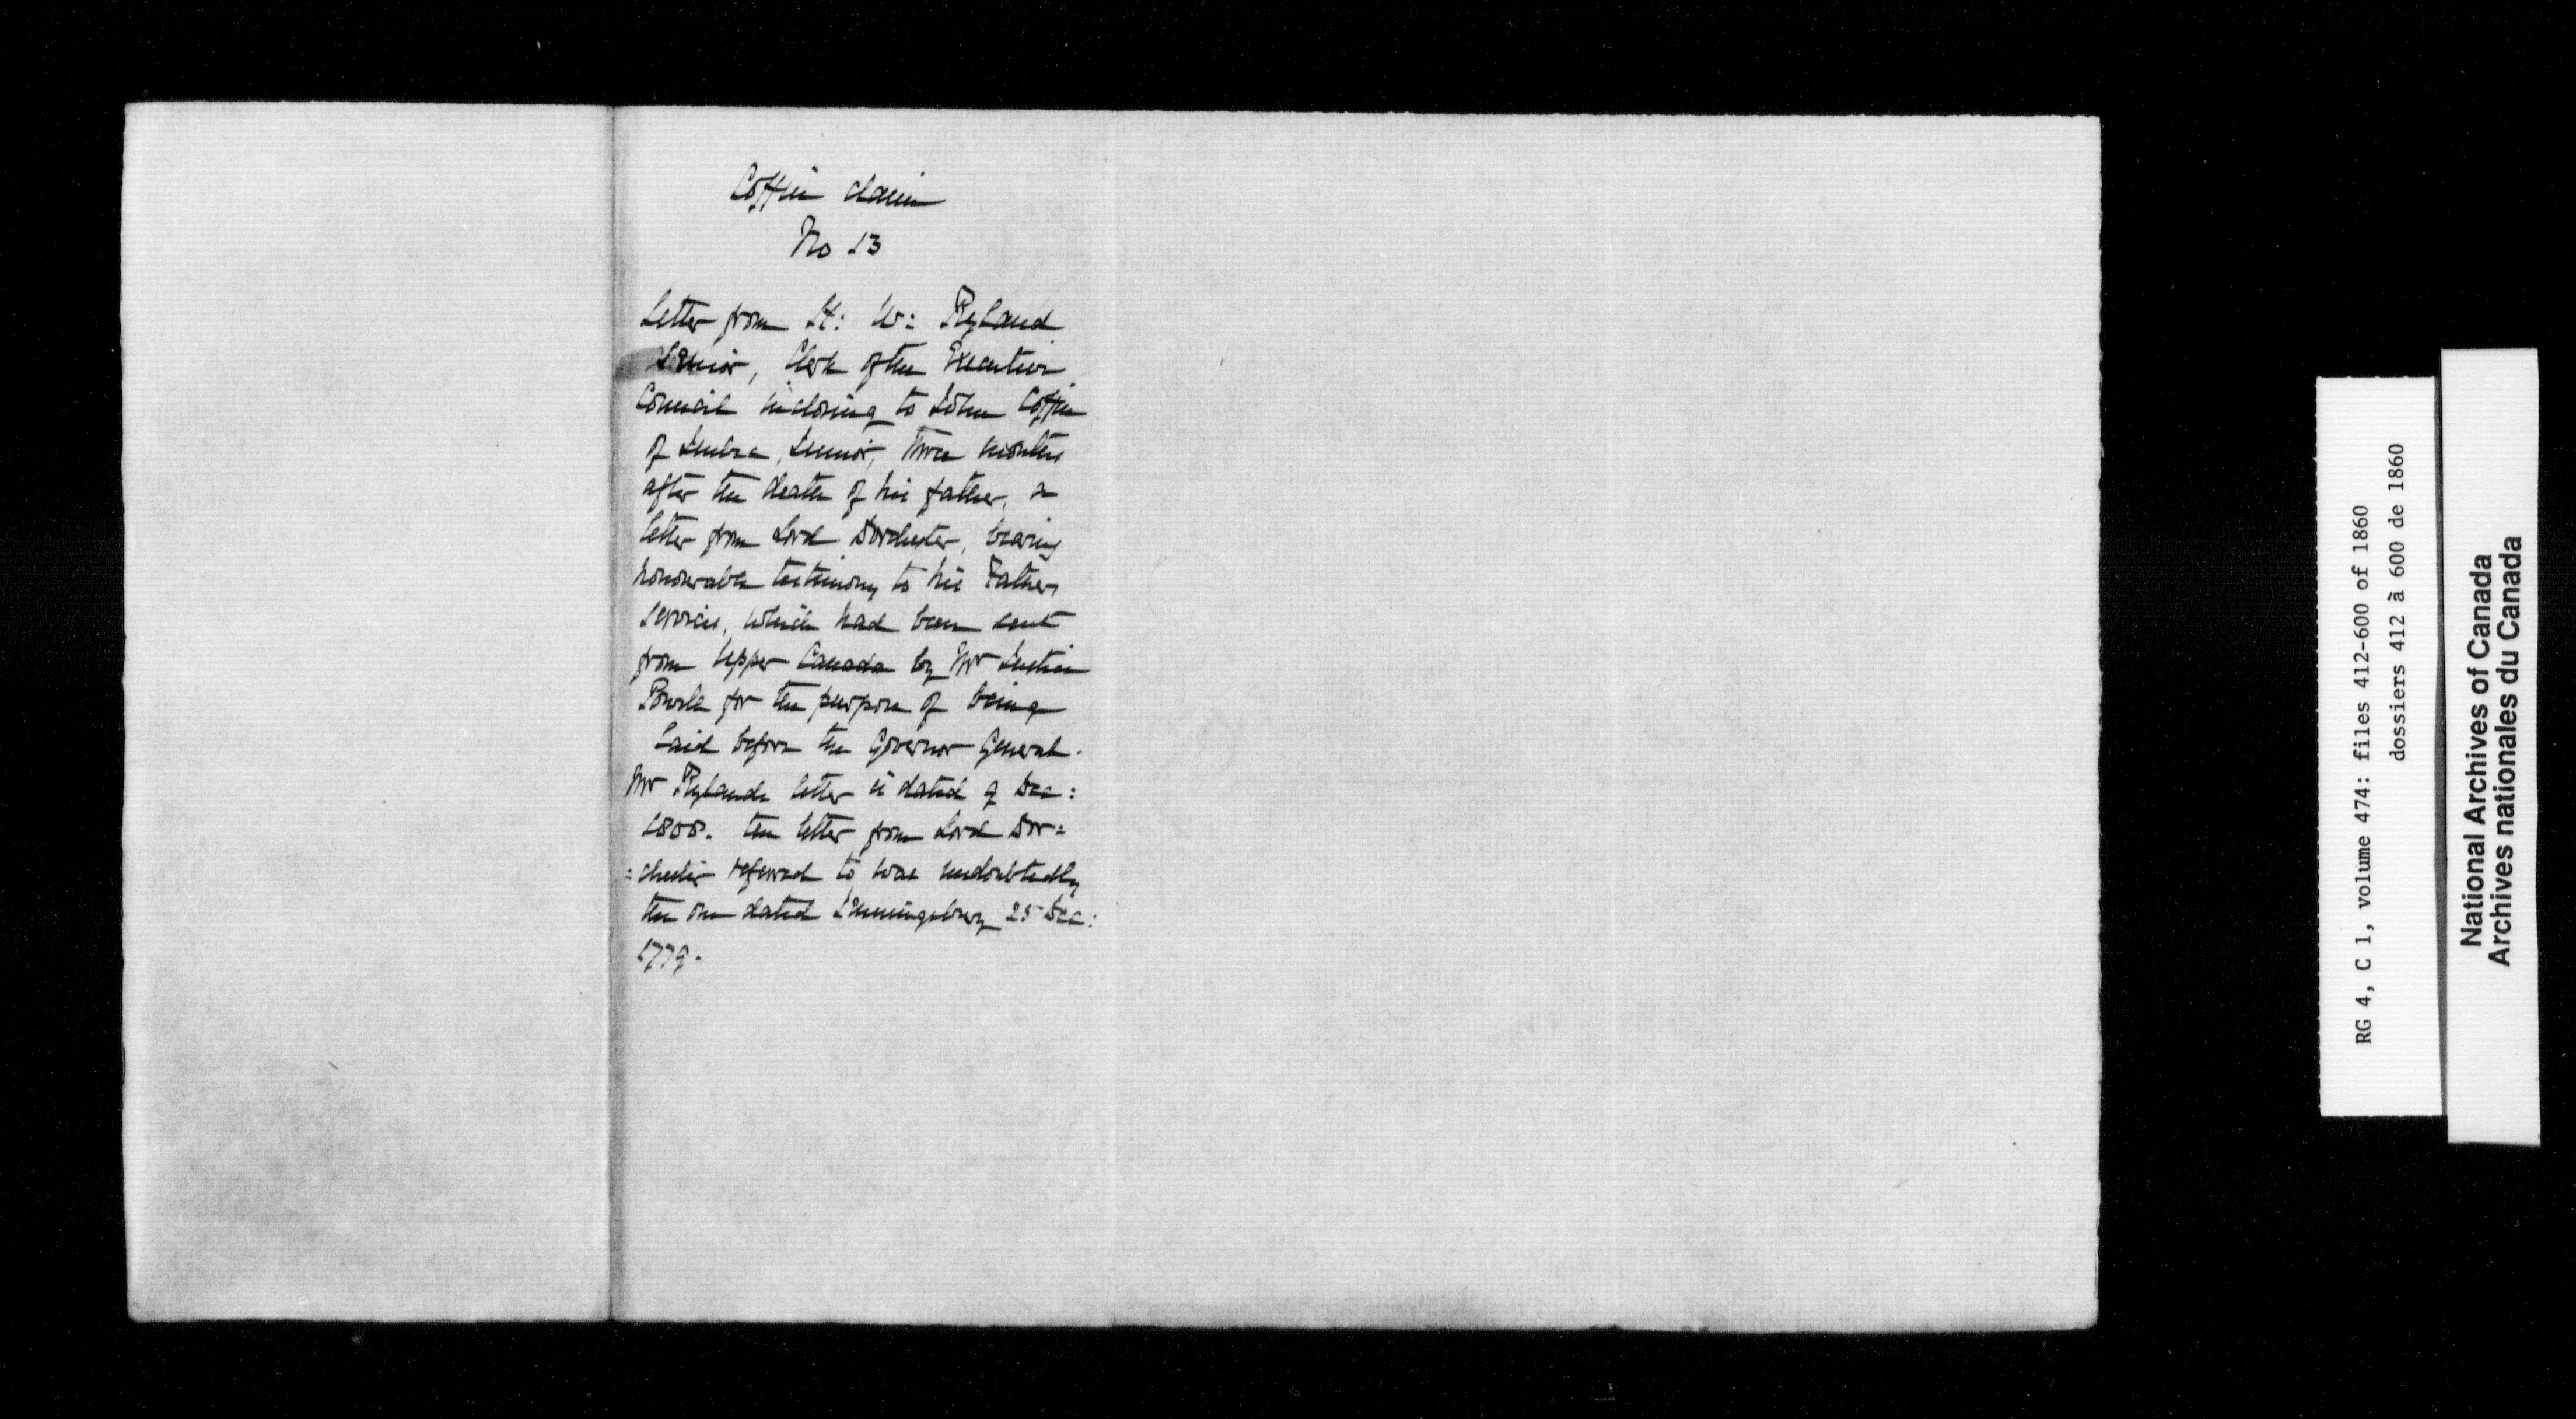 Coffin claim
No 13
Letter from H: W: Ryland
Senior, Clerk of the Executive
Council inclosing to John Coffin
of Quebec, Junior, three months
after the death of his father, a
letter from Lord Dorchester, bearing
honourable testimony to his Fathers
services, which had been sent
from Upper Canada by Mr Justice
Powell for the purpose of being
laid before the Governor General.
Mr Rylands letter is dated 9 Dec:
1808. the letter from Lord Dor=
=chester referred to was undoubtedly
the one dated 25 Dec:
1779.
RG 4, C 1, volume 474: files 412-600 of 1860
dossiers 412 à 600 de 1860
National Archives of Canada
Archives nationales du Canada